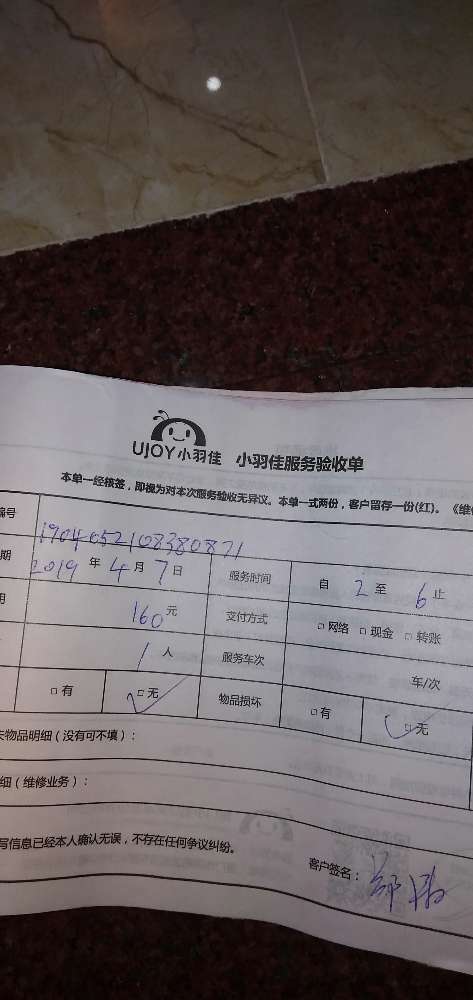 UJOY小羽佳 小羽佳服务验收单
本单一经核签，即视为对本次服务验收无异议。本单一式两份，客户留存一份(红)。《维
编号 1904052108380871
期 2019 年 4 月 7 日 服务时间 自 2 至 6 止
用 160 元 交付方式 □网络 □现金 □转账
1 人 服务车次 车/次
□有 □无 物品损坏 □有 □无
失物品明细（没有可不填）：
细（维修业务）：
写信息已经本人确认无误，不存在任何争议纠纷。
客户签名：